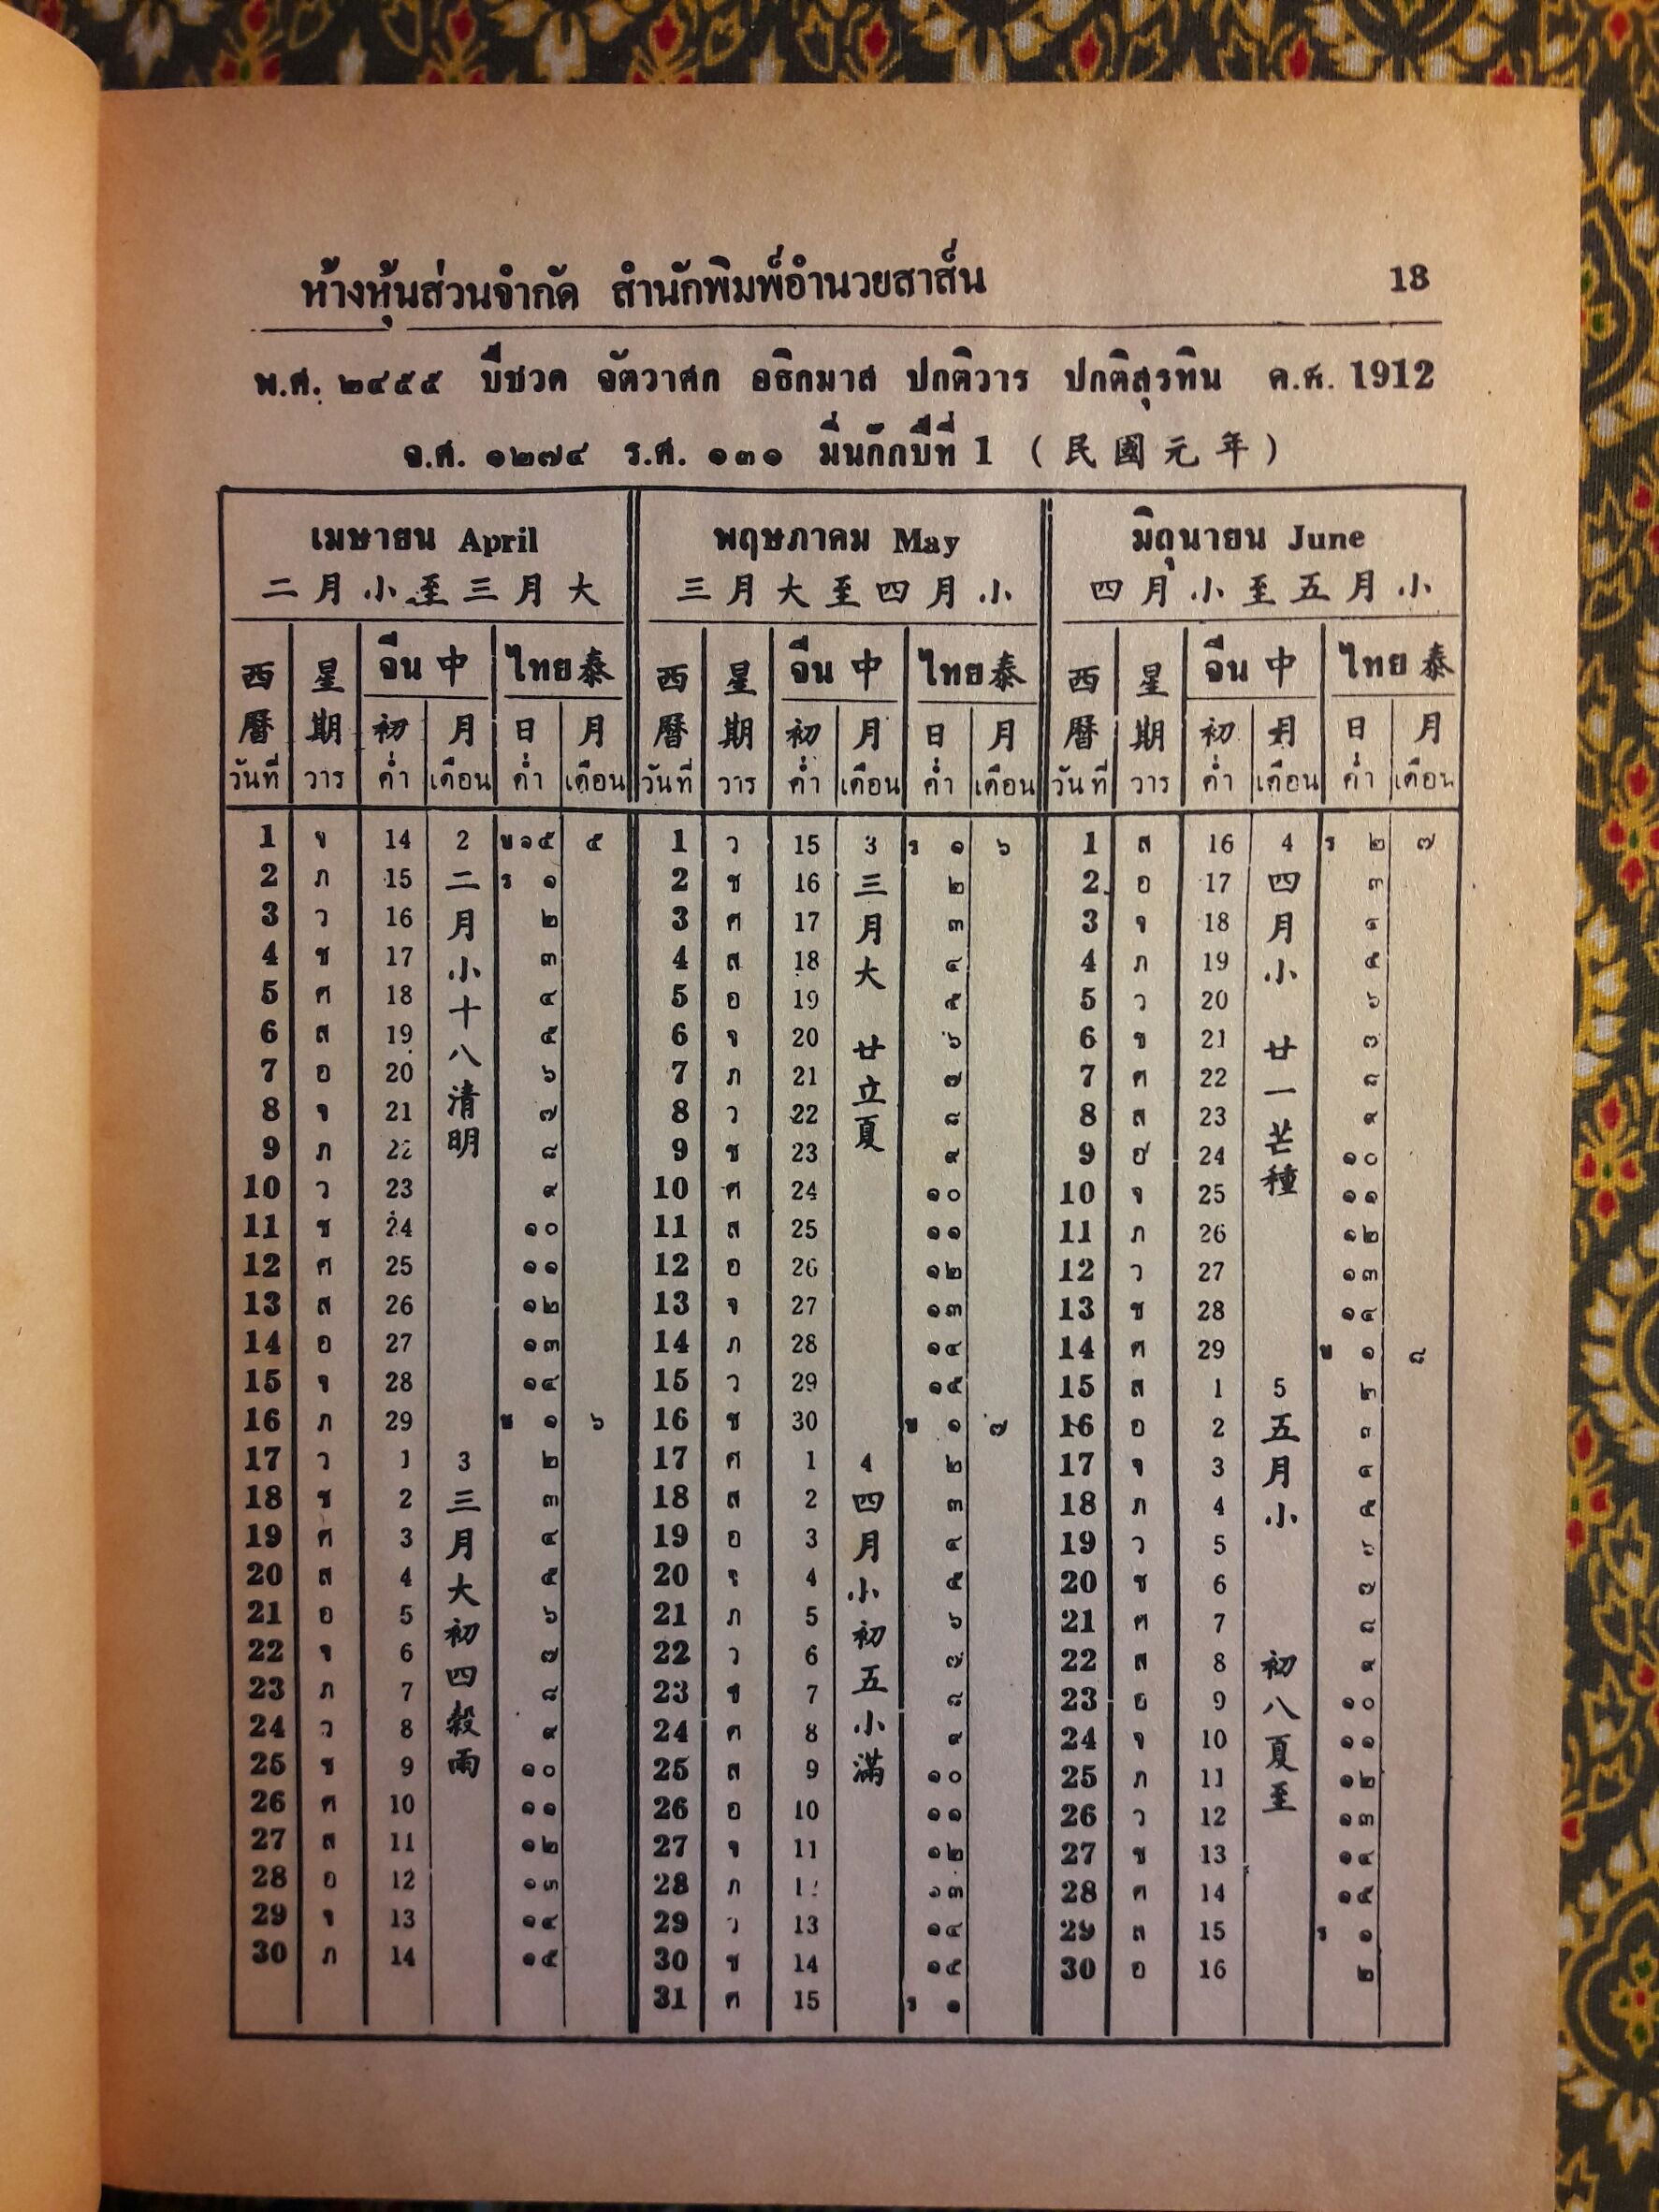 ห้างหุ้นส่วนจำกัด สำนักพิมพ์อำนวยสาส์น 13
พ.ศ. ๒๔๕๕ ปีชวด จัตวาศก อธิกมาส ปกติวาร ปกติสุรทิน ค.ศ. 1912
จ.ศ. ๑๒๗๔ ร.ศ. ๑๓๑ มิ่นก๊กปีที่ 1 (民國元年)
เมษายน April พฤษภาคม May มิถุนายน June
二月小至三月大 三月大至四月小 四月小至五月小
西 星 จีน中 ไทย泰 西 星 จีน中 ไทย泰 西 星 จีน中 ไทย泰
曆 期 初 月 日 月 曆 期 初 月 日 月 曆 期 初 月 日 月
วันที่ วาร ค่ำ เดือน ค่ำ เดือน วันที่ วาร ค่ำ เดือน ค่ำ เดือน วันที่ วาร ค่ำ เดือน ค่ำ เดือน
1 จ 14 2 ข ๑๕ ๕ 1 ว 15 3 ร ๑ ๖ 1 ส 16 4 ร ๒ ๗
2 ภ 15 二 ร ๑ 2 ช 16 三 ๒ 2 อ 17 四 ๓
3 ว 16 月 ๒ 3 ศ 17 月 ๓ 3 จ 18 月 ๔
4 ช 17 小 ๓ 4 ส 18 大 ๔ 4 ภ 19 小 ๕
5 ศ 18 十 ๔ 5 อ 19 ๕ 5 ว 20 ๖
6 ส 19 八 ๕ 6 จ 20 廿 ๖ 6 ช 21 廿 ๗
7 อ 20 ๖ 7 ภ 21 立 ๗ 7 ศ 22 一 ๘
8 จ 21 清 ๗ 8 ว 22 夏 ๘ 8 ส 23 芒 ๙
9 ภ 22 明 ๘ 9 ช 23 ๙ 9 อ 24 種 ๑๐
10 ว 23 ๙ 10 ศ 24 ๑๐ 10 จ 25 ๑๑
11 ช 24 ๑๐ 11 ส 25 ๑๑ 11 ภ 26 ๑๒
12 ศ 25 ๑๑ 12 อ 26 ๑๒ 12 ว 27 ๑๓
13 ส 26 ๑๒ 13 จ 27 ๑๓ 13 ช 28 ๑๔
14 อ 27 ๑๓ 14 ภ 28 ๑๔ 14 ศ 29 ข ๑ ๘
15 จ 28 ๑๔ 15 ว 29 ๑๕ 15 ส 1 5 ๒
16 ภ 29 ข ๑ ๖ 16 ช 30 ข ๑ ๗ 16 อ 2 五 ๓
17 ว 1 3 ๒ 17 ศ 1 4 ๒ 17 จ 3 月 ๔
18 ช 2 三 ๓ 18 ส 2 四 ๓ 18 ภ 4 小 ๕
19 ศ 3 月 ๔ 19 อ 3 月 ๔ 19 ว 5 ๖
20 ส 4 大 ๕ 20 จ 4 小 ๕ 20 ช 6 ๗
21 อ 5 初 ๖ 21 ภ 5 初 ๖ 21 ศ 7 ๘
22 จ 6 四 ๗ 22 ว 6 五 ๗ 22 ส 8 初 ๙
23 ภ 7 ๘ 23 ช 7 ๘ 23 อ 9 八 ๑๐
24 ว 8 穀 ๙ 24 ศ 8 小 ๙ 24 จ 10 夏 ๑๑
25 ช 9 雨 ๑๐ 25 ส 9 滿 ๑๐ 25 ภ 11 至 ๑๒
26 ศ 10 ๑๑ 26 อ 10 ๑๑ 26 ว 12 ๑๓
27 ส 11 ๑๒ 27 จ 11 ๑๒ 27 ช 13 ๑๔
28 อ 12 ๑๓ 28 ภ 12 ๑๓ 28 ศ 14 ๑๕
29 จ 13 ๑๔ 29 ว 13 ๑๔ 29 ส 15 ร ๑
30 ภ 14 ๑๕ 30 ช 14 ๑๕ 30 อ 16 ๒
31 ศ 15 ร ๑